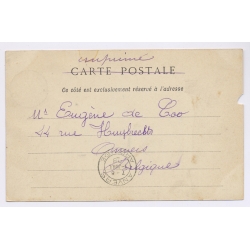 imprimé
CARTE POSTALE
Ce côté est exclusivement réservé à l'adresse
Mr Eugène de Coo
44 rue
Anvers
Belgique